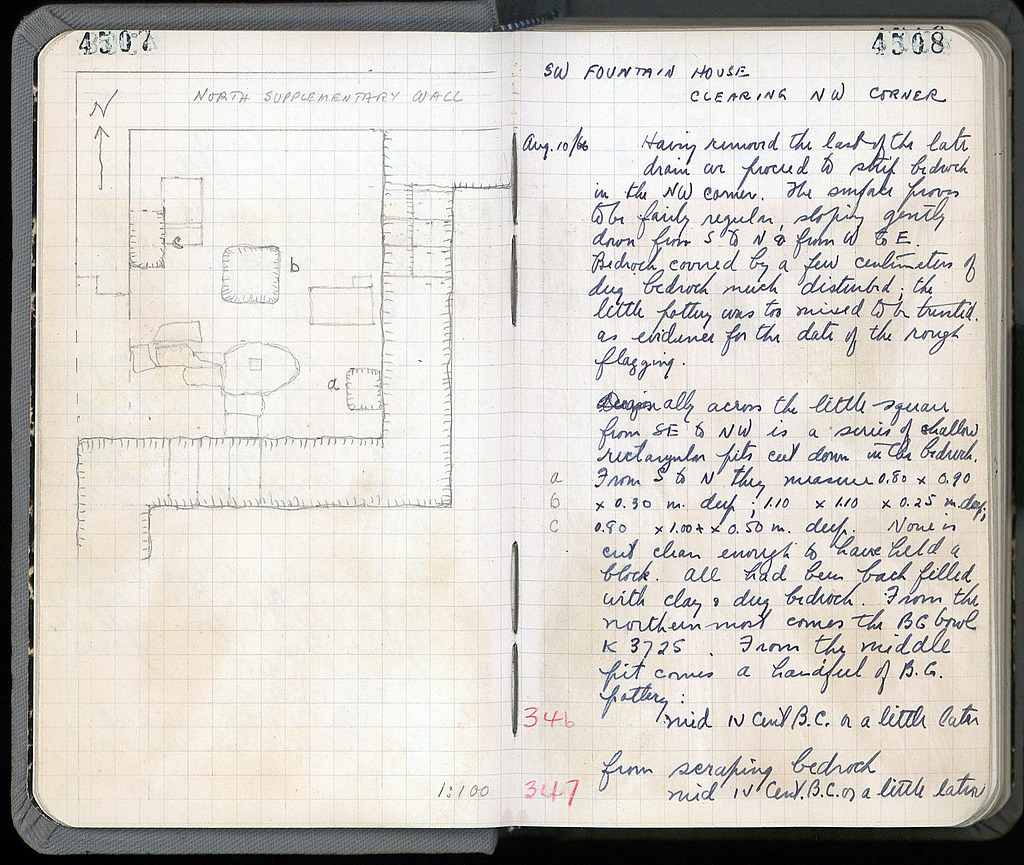 4507
N
NORTH SUPPLEMENTARY WALL
c
b
a
1:100
4508
SW FOUNTAIN HOUSE
CLEARING NW CORNER
Aug. 10/66 Having removed the last of the late
drain we proceed to strip bedrock
in the NW corner. The surface proves
to be fairly regular, sloping gently
down from S to N & from W to E.
Bedrock covered by a few centimeters of
dug bedrock much disturbed; the
little pottery was too mixed to be trusted
as evidence for the date of the rough
flagging.
Diagonally across the little square
from SE to NW is a series of shallow
rectangular pits cut down in the bedrock.
a From S to N they measure 0.80 x 0.90
b x 0.30 m. deep; 1.10 x 1.10 x 0.25 m. deep;
c 0.90 x 1.00+ x 0.50 m. deep. None is
cut clean enough to have held a
block. All had been back filled
with clay & dug bedrock. From the
northernmost comes the BG bowl
K 3725. From the middle
pit comes a handful of B.G.
pottery:
346 mid IV Cent B.C. or a little later
from scraping bedrock
347 mid IV Cent. B.C. or a little later